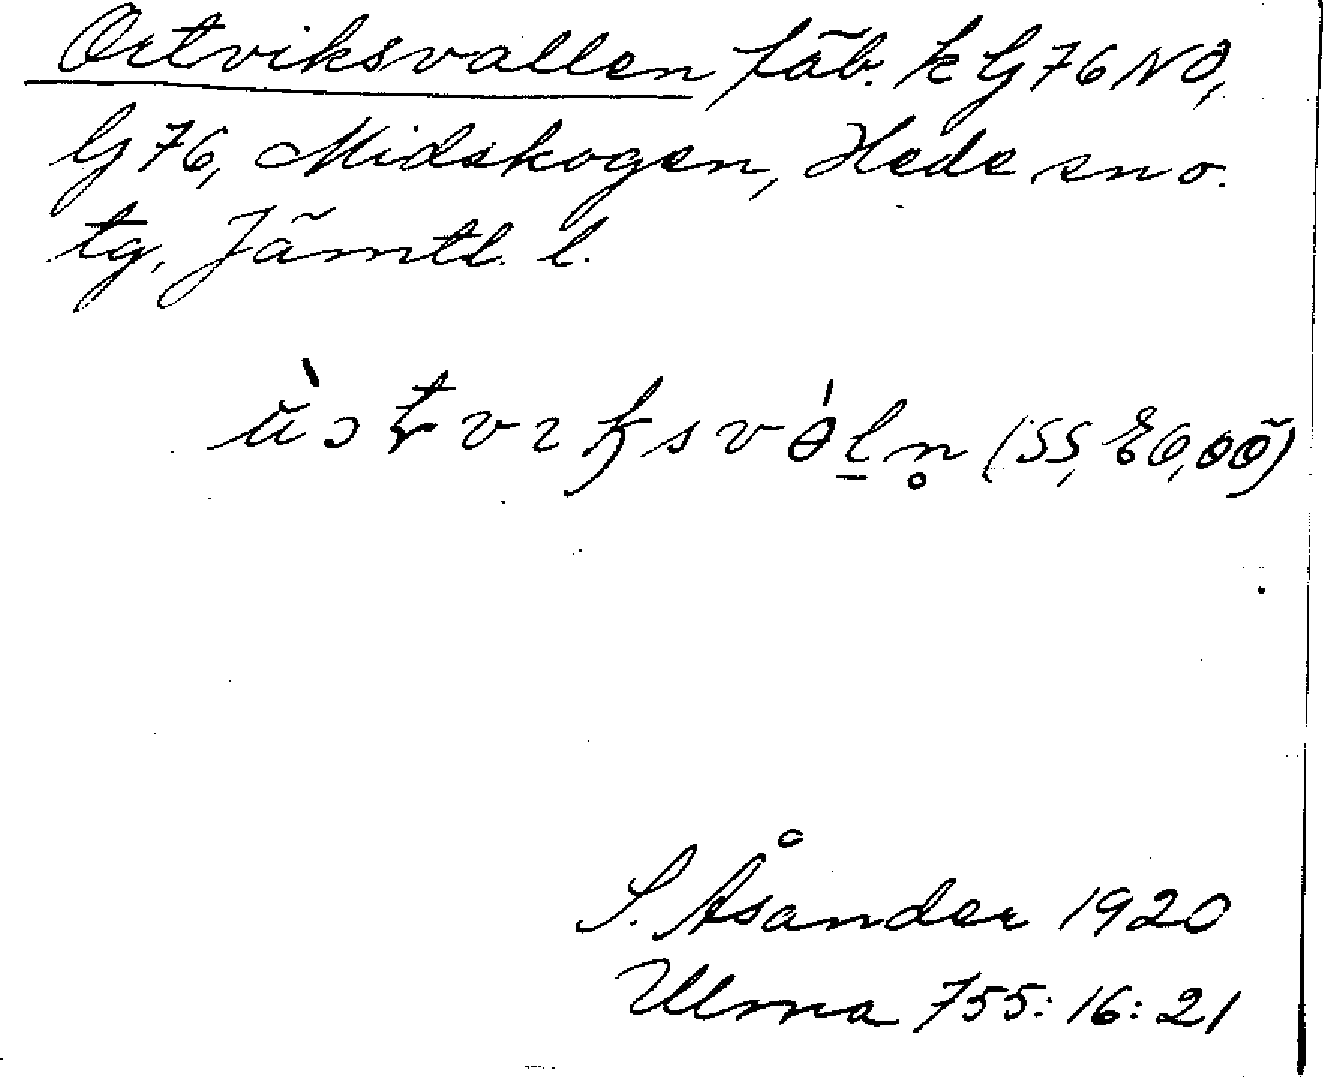 Ortviksvallen fäb. k G 76 NO,
G 76, Midskogen, Hede sn o.
tg, Jämtl. l.
(SS, EÖ, OÖ)
S. Åsander 1920
Ulma 755:16:21